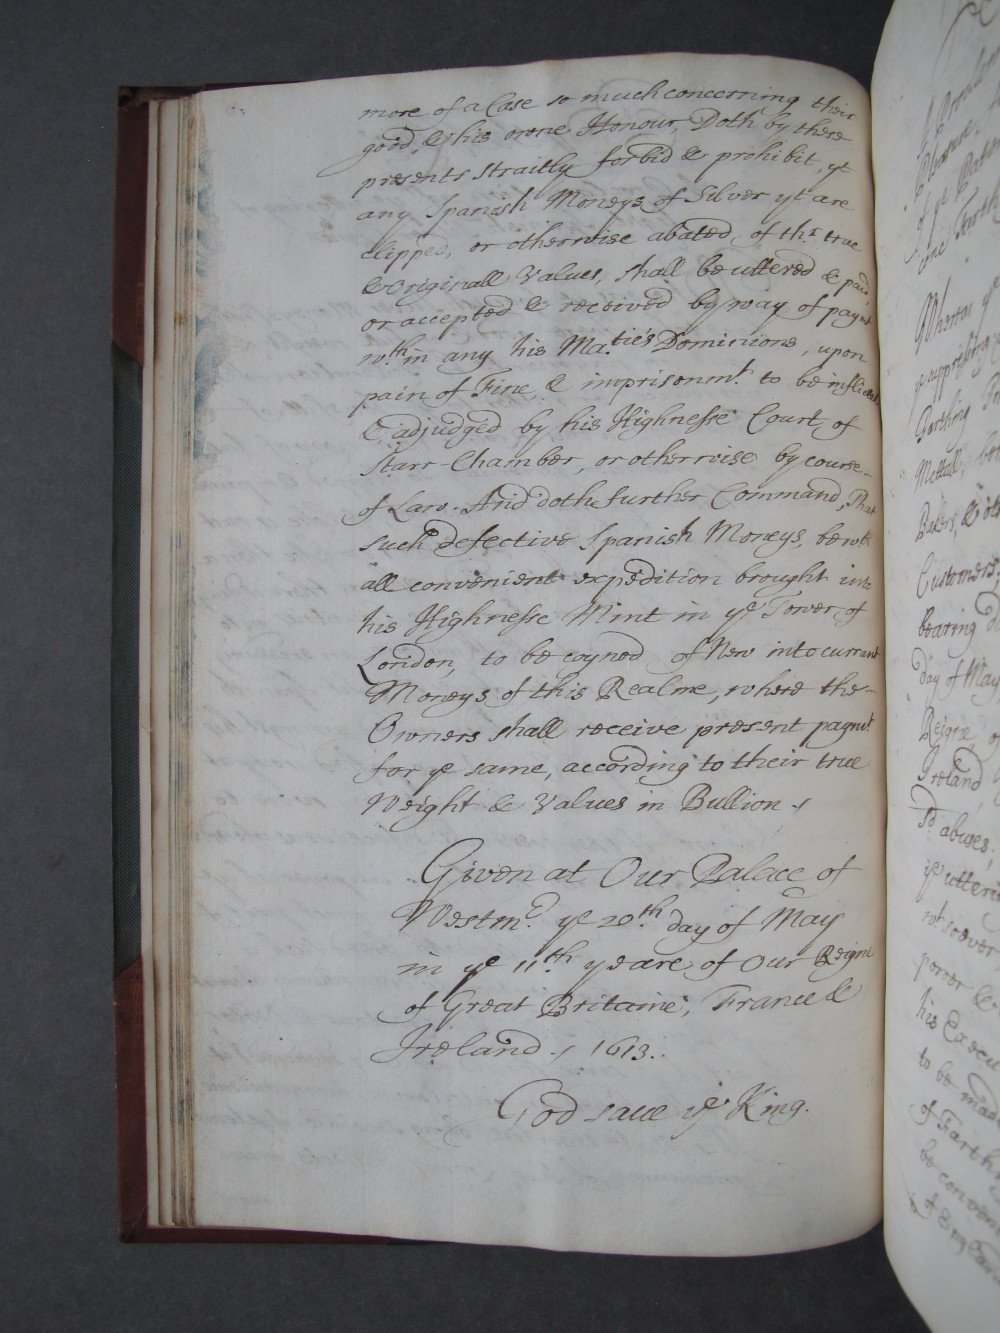 more of a Case so much concerning their
good, & his owne Honour, Doth by these
presents straitly forbid & prohibit, yt
any Spanish Moneys of Silver yt are
Clipped, or otherwise abated, of thr true
& Originall Values, shall be uttered & paid,
or accepted & received by way of paymt
wth.in any his Ma.ties Dominions, upon
pain of Fine & imprisonmt. to be inflicted
& adjudged by his Highnesse Court of
Starr-Chamber, or otherwise by course-
of Law. And doth further Command, That
such defective Spanish Moneys, be wth
all convenient expedition brought into
his Highnesse Mint in ye Tower of
London, to be coyned of New into currant
Moneys of this Realme, where the-
Owners shall receive present paymt.
for ye same, according to their true
Weight & Values in Bullion.
Given at Our Palace of
Westmr. ye 20th. day of May
in ye 11th. yeare of Our Reigne
of Great Britaine, France &
Ireland. 1613.
God save ye King.
Whereas ye
ye suppressing
Farthing
Mettall,
Bakers, &
Customers,
bearing
day of May
Reigne,
Ireland,
Sd. abuses,
ye uttering
power &
his
to be made
of Farth
be
of